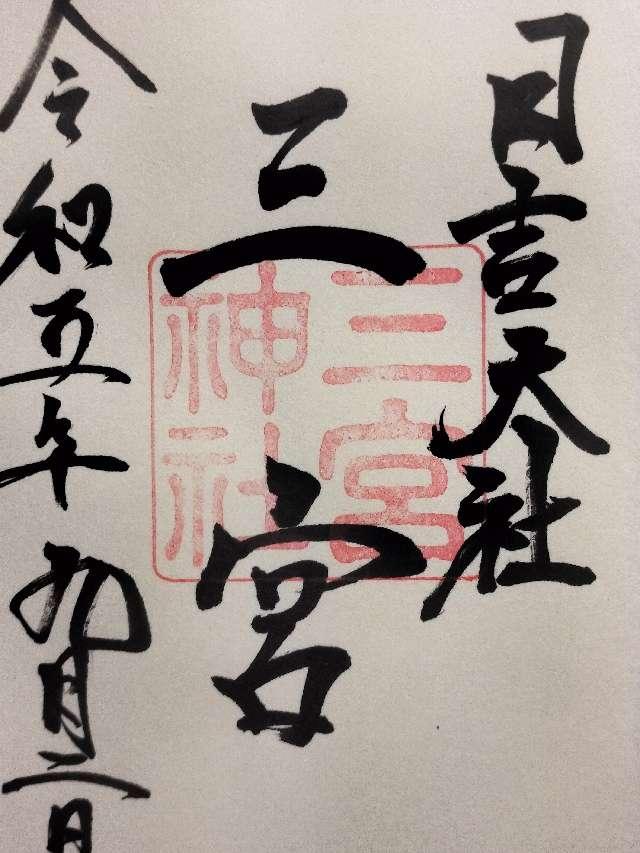 日吉天社
三宮
三宮
神社
令和五年九月二日